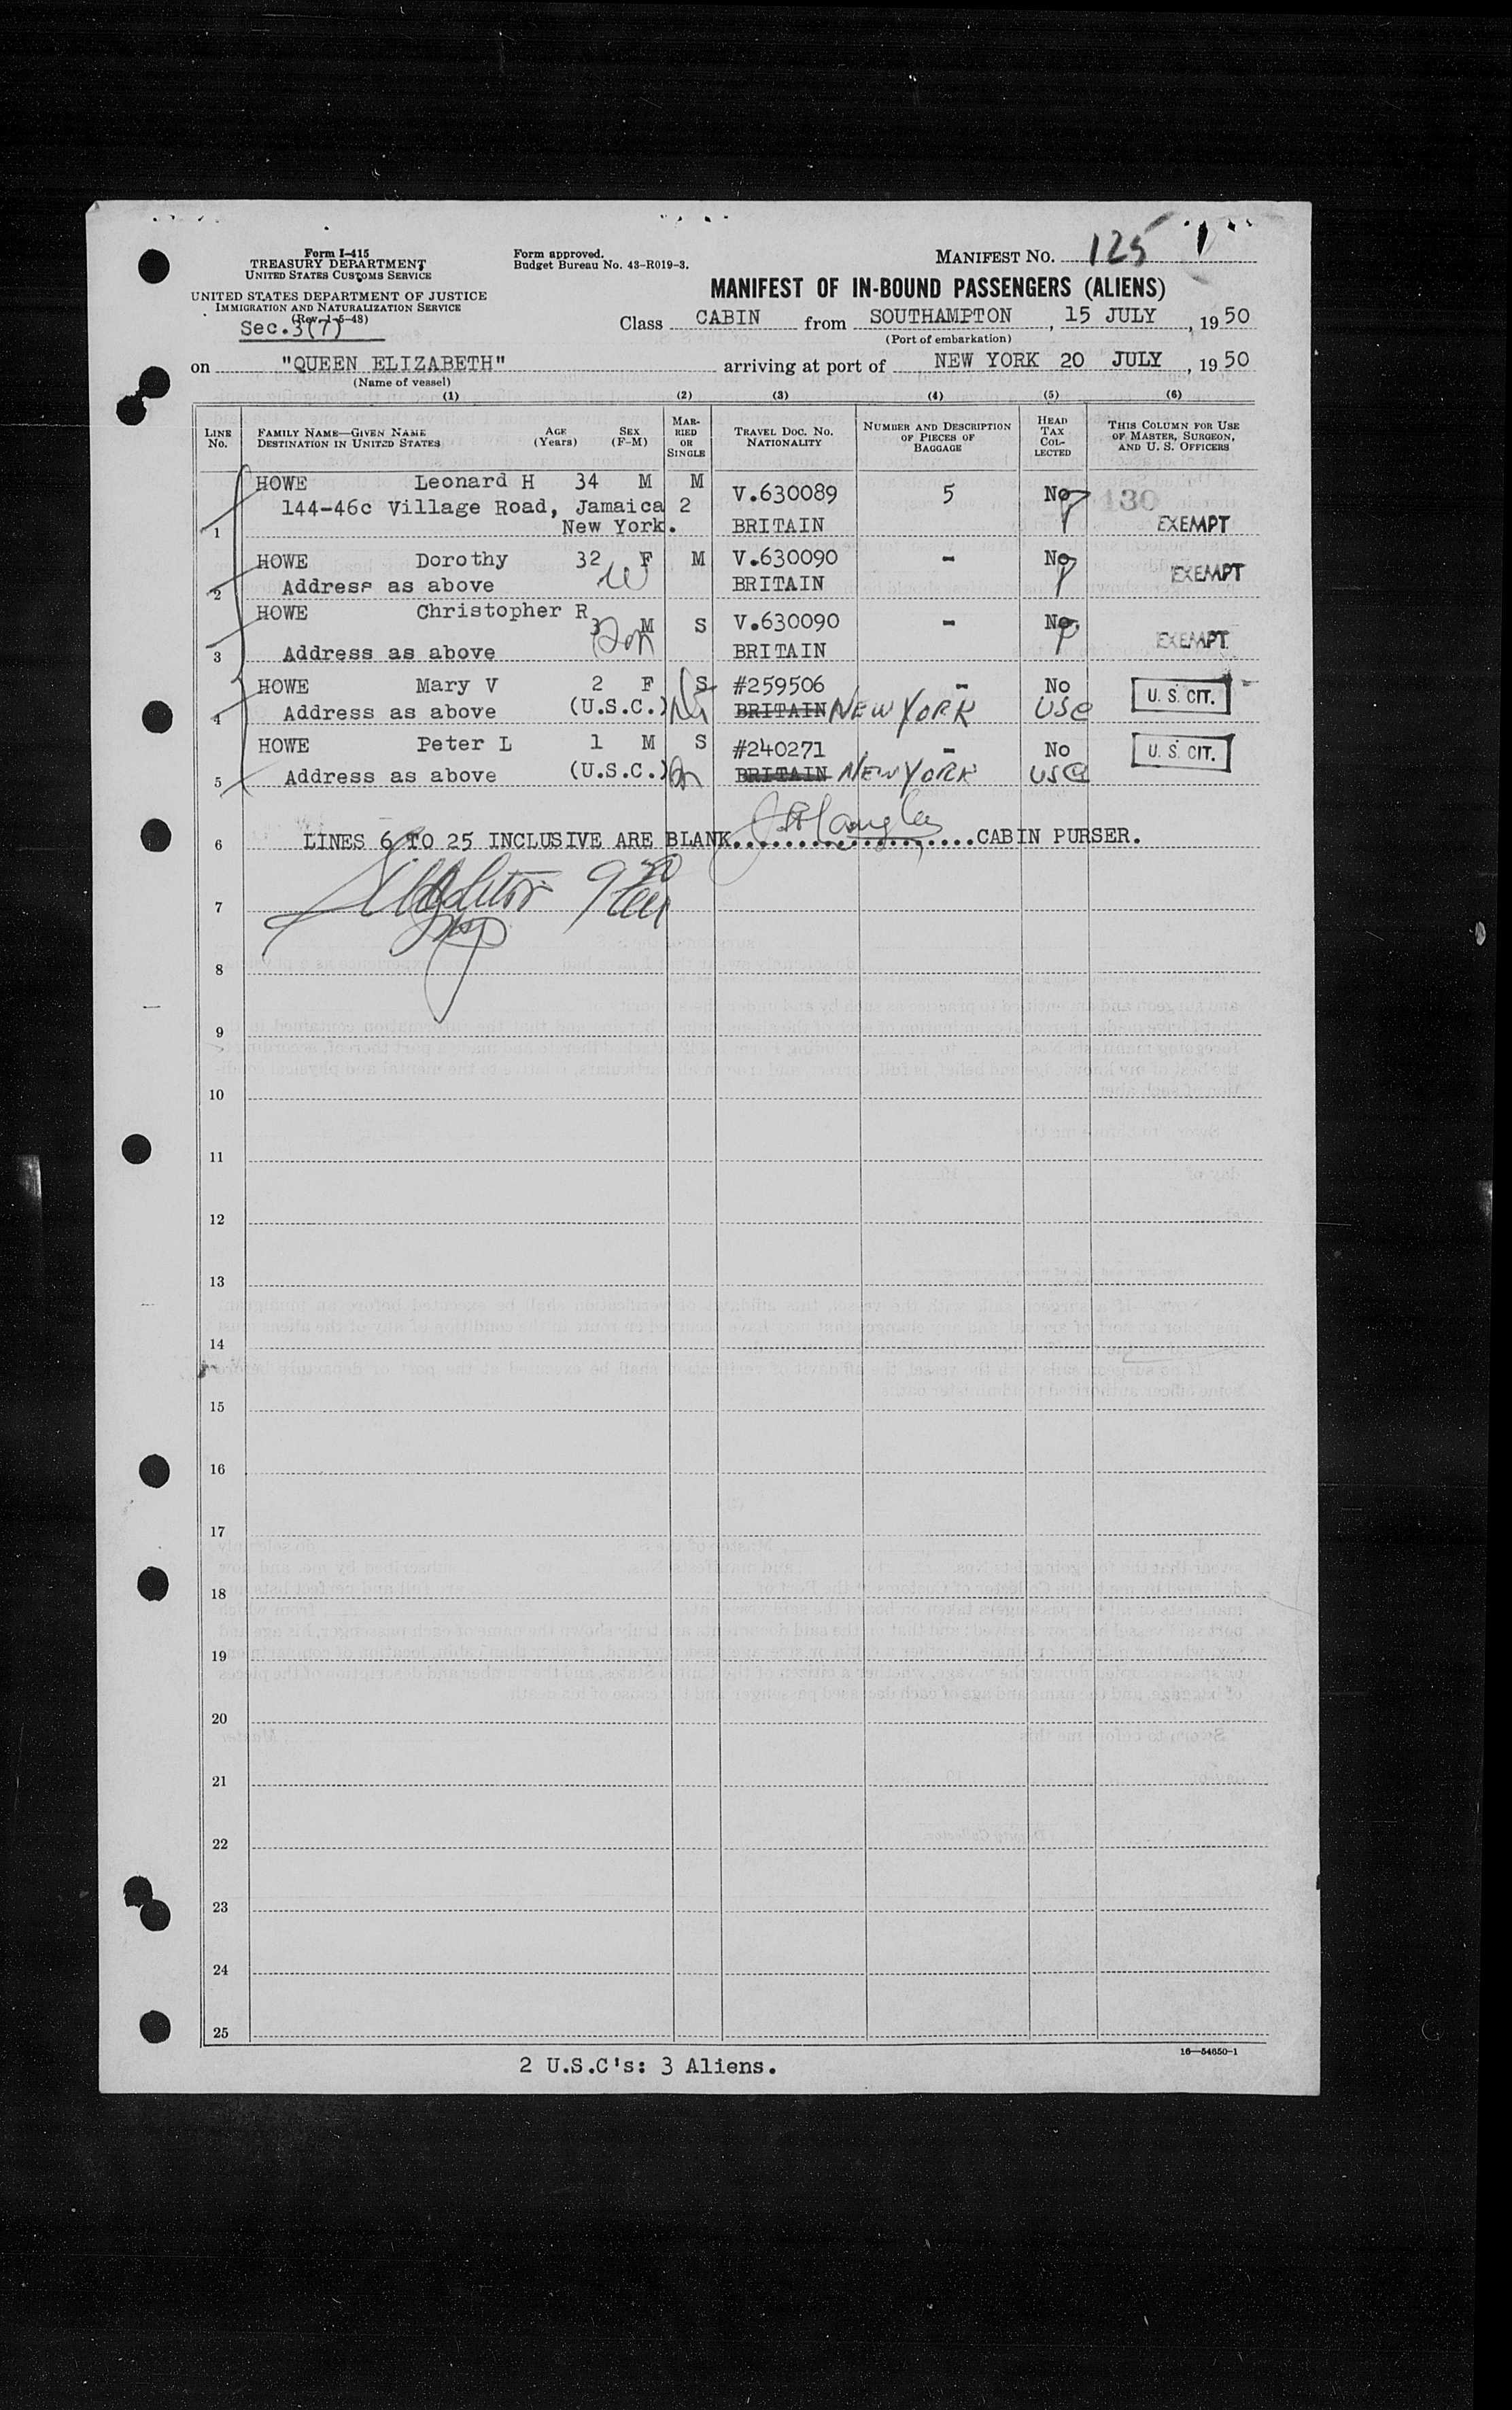 Form I-415
TREASURY DEPARTMENT
UNITED STATES CUSTOMS SERVICE
UNITED STATES DEPARTMENT OF JUSTICE
IMMIGRATION AND NATURALIZATION SERVICE
(Rev. 1-5-48)
Sec.3(7)
Form approved.
Budget Bureau No. 43-R019-3.
MANIFEST NO. 125
MANIFEST OF IN-BOUND PASSENGERS (ALIENS)
Class CABIN from SOUTHAMPTON, 15 JULY, 1950
(Port of embarkation)
on "QUEEN ELIZABETH" arriving at port of NEW YORK 20 JULY, 1950
(Name of vessel)
(1) (2) (3) (4) (5) (6)
LINE No. FAMILY NAME—GIVEN NAME DESTINATION IN UNITED STATES AGE (Years) SEX (F-M) MARRIED OR SINGLE TRAVEL DOC. NO. NATIONALITY NUMBER AND DESCRIPTION OF PIECES OF BAGGAGE HEAD TAX COLLECTED THIS COLUMN FOR USE OF MASTER, SURGEON, AND U. S. OFFICERS
HOWE Leonard H 34 M M V.630089 5 No 130
144-46c Village Road, Jamaica 2
1 New York. BRITAIN EXEMPT
HOWE Dorothy 32 F M V.630090 - No
2 Address as above W BRITAIN EXEMPT
HOWE Christopher R 3 M S V.630090 - No
3 Address as above Son BRITAIN EXEMPT
HOWE Mary V 2 F S #259506 - No
4 Address as above (U.S.C.) BRITAIN NEW YORK USC U. S. CIT.
HOWE Peter L 1 M S #240271 - No
5 Address as above (U.S.C.) BRITAIN NEW YORK USC U. S. CIT.
6 LINES 6 TO 25 INCLUSIVE ARE BLANK....................CABIN PURSER.
7
8
9
10
11
12
13
14
15
16
17
18
19
20
21
22
23
24
25
16—54650-1
2 U.S.C's: 3 Aliens.